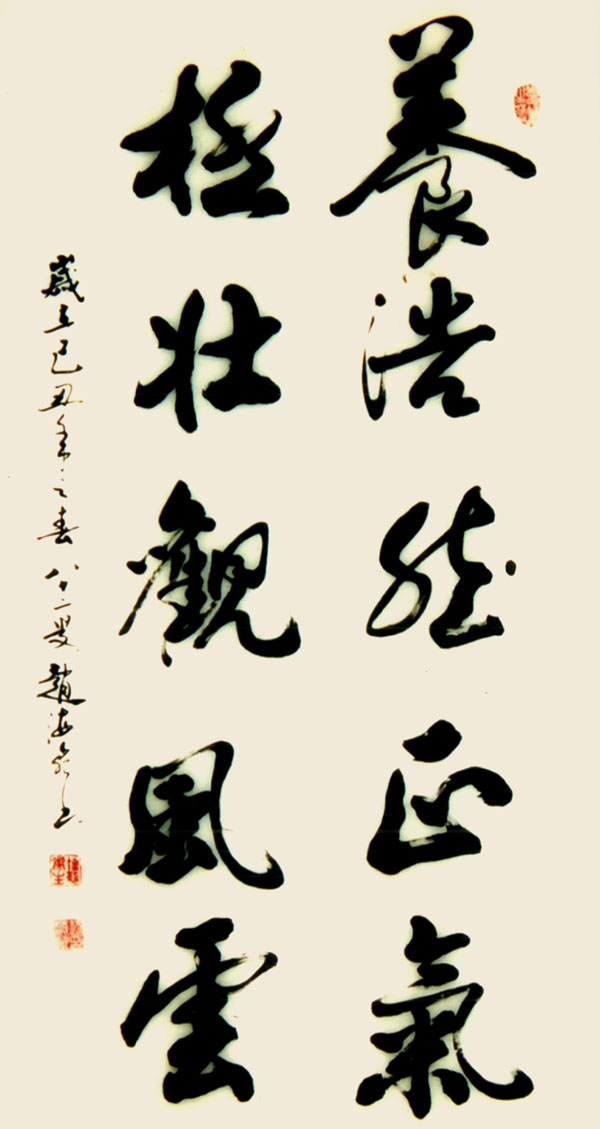 養浩然正氣
極壯觀風雲
歲在己丑年之春八十二叟趙海